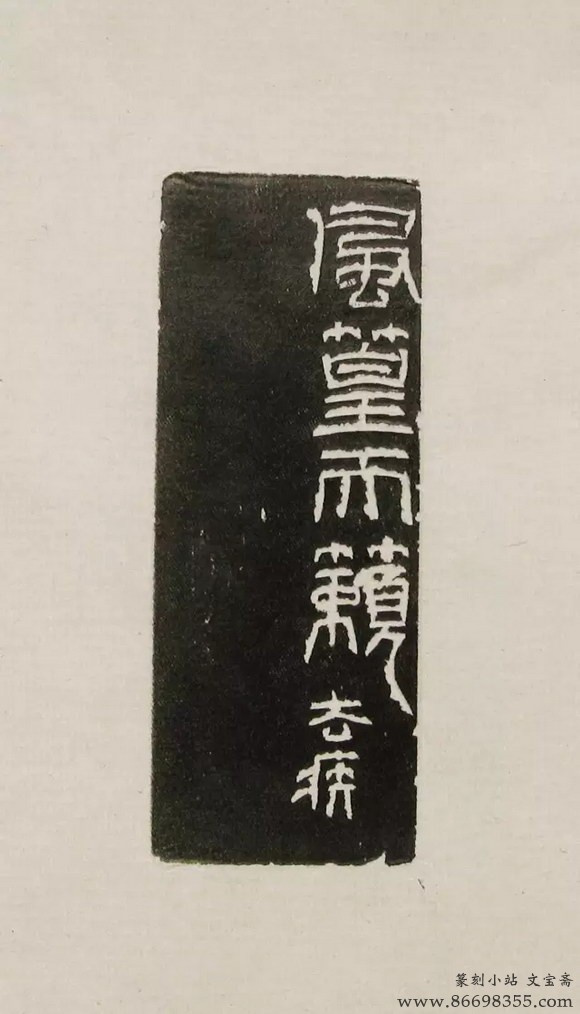 風篁雨籟 去疾
篆刻小站 文宝斋
www.86698355.com